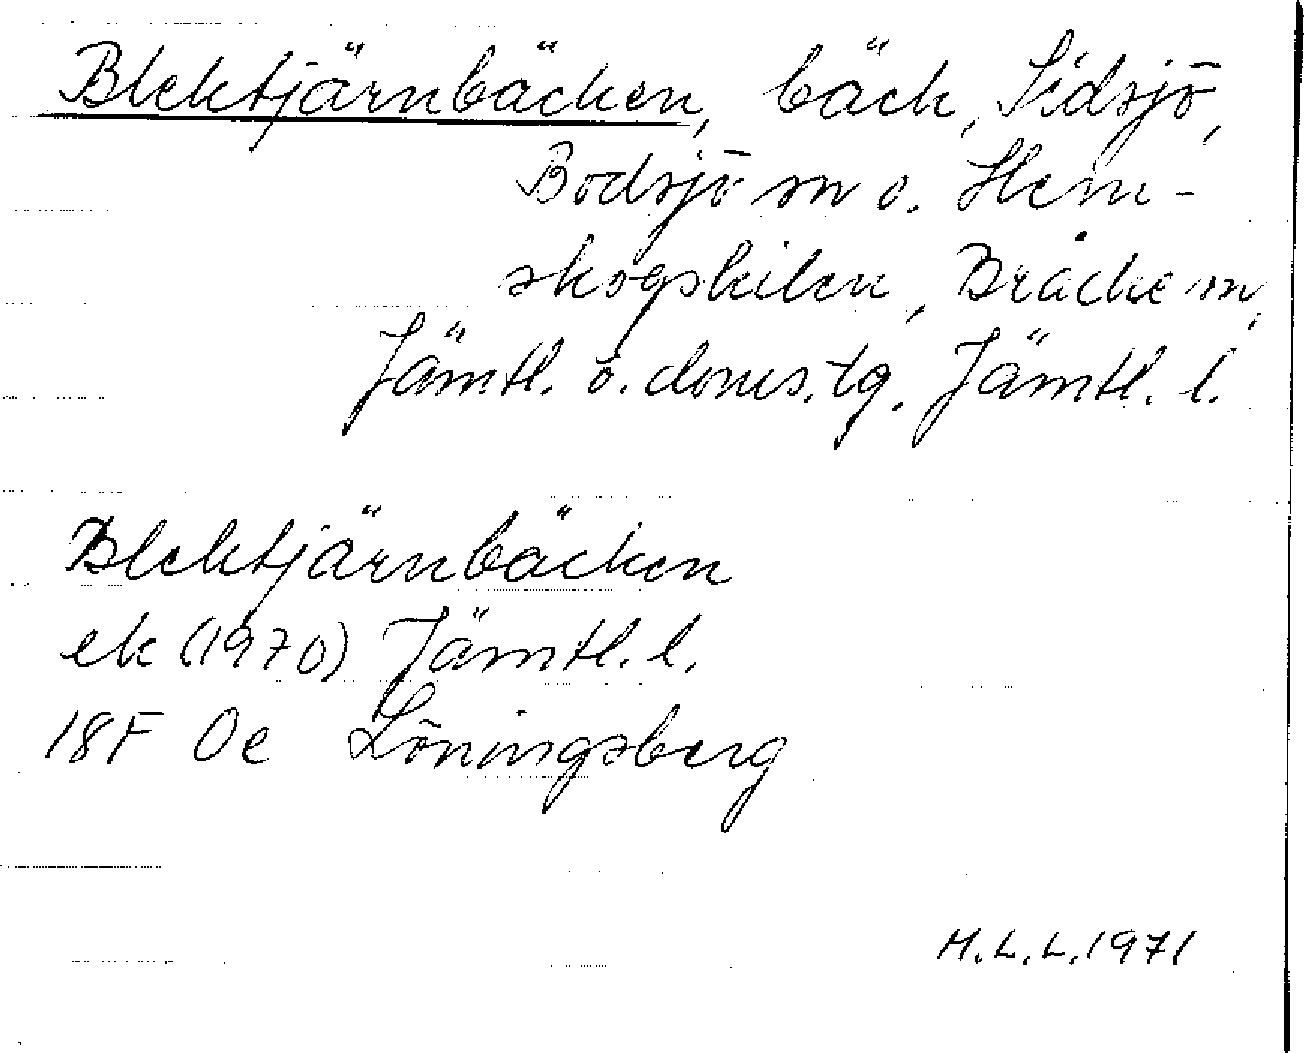 Blektjärnbäcken, bäck, Sidsjö,
Bodsjö sn o. Hem-
skogskilen, Bräcke sn,
Jämtl. ö. doms.tg. Jämtl. l.
Blektjärnbäcken
ek (1970) Jämtl. l.
18F 0e Löningsberg
M.L.L. 1971